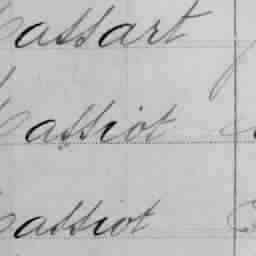 Cassart
Cassiot
Cassiot